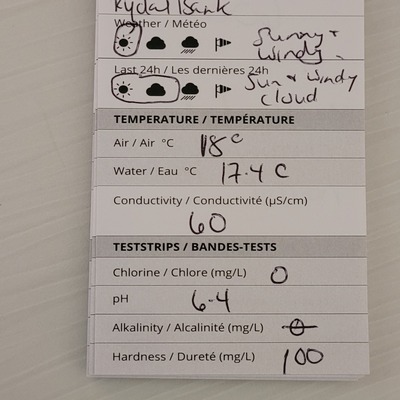 Rydal Bank
Weather / Météo
Sunny +
windy.
Last 24h / Les dernières 24h
Sun + windy
cloud
TEMPERATURE / TEMPÉRATURE
Air / Air °C 18 c
Water / Eau °C 17.4 C
Conductivity / Conductivité (µS/cm)
60
TESTSTRIPS / BANDES-TESTS
Chlorine / Chlore (mg/L) 0
pH 6.4
Alkalinity / Alcalinité (mg/L) 0
Hardness / Dureté (mg/L) 100